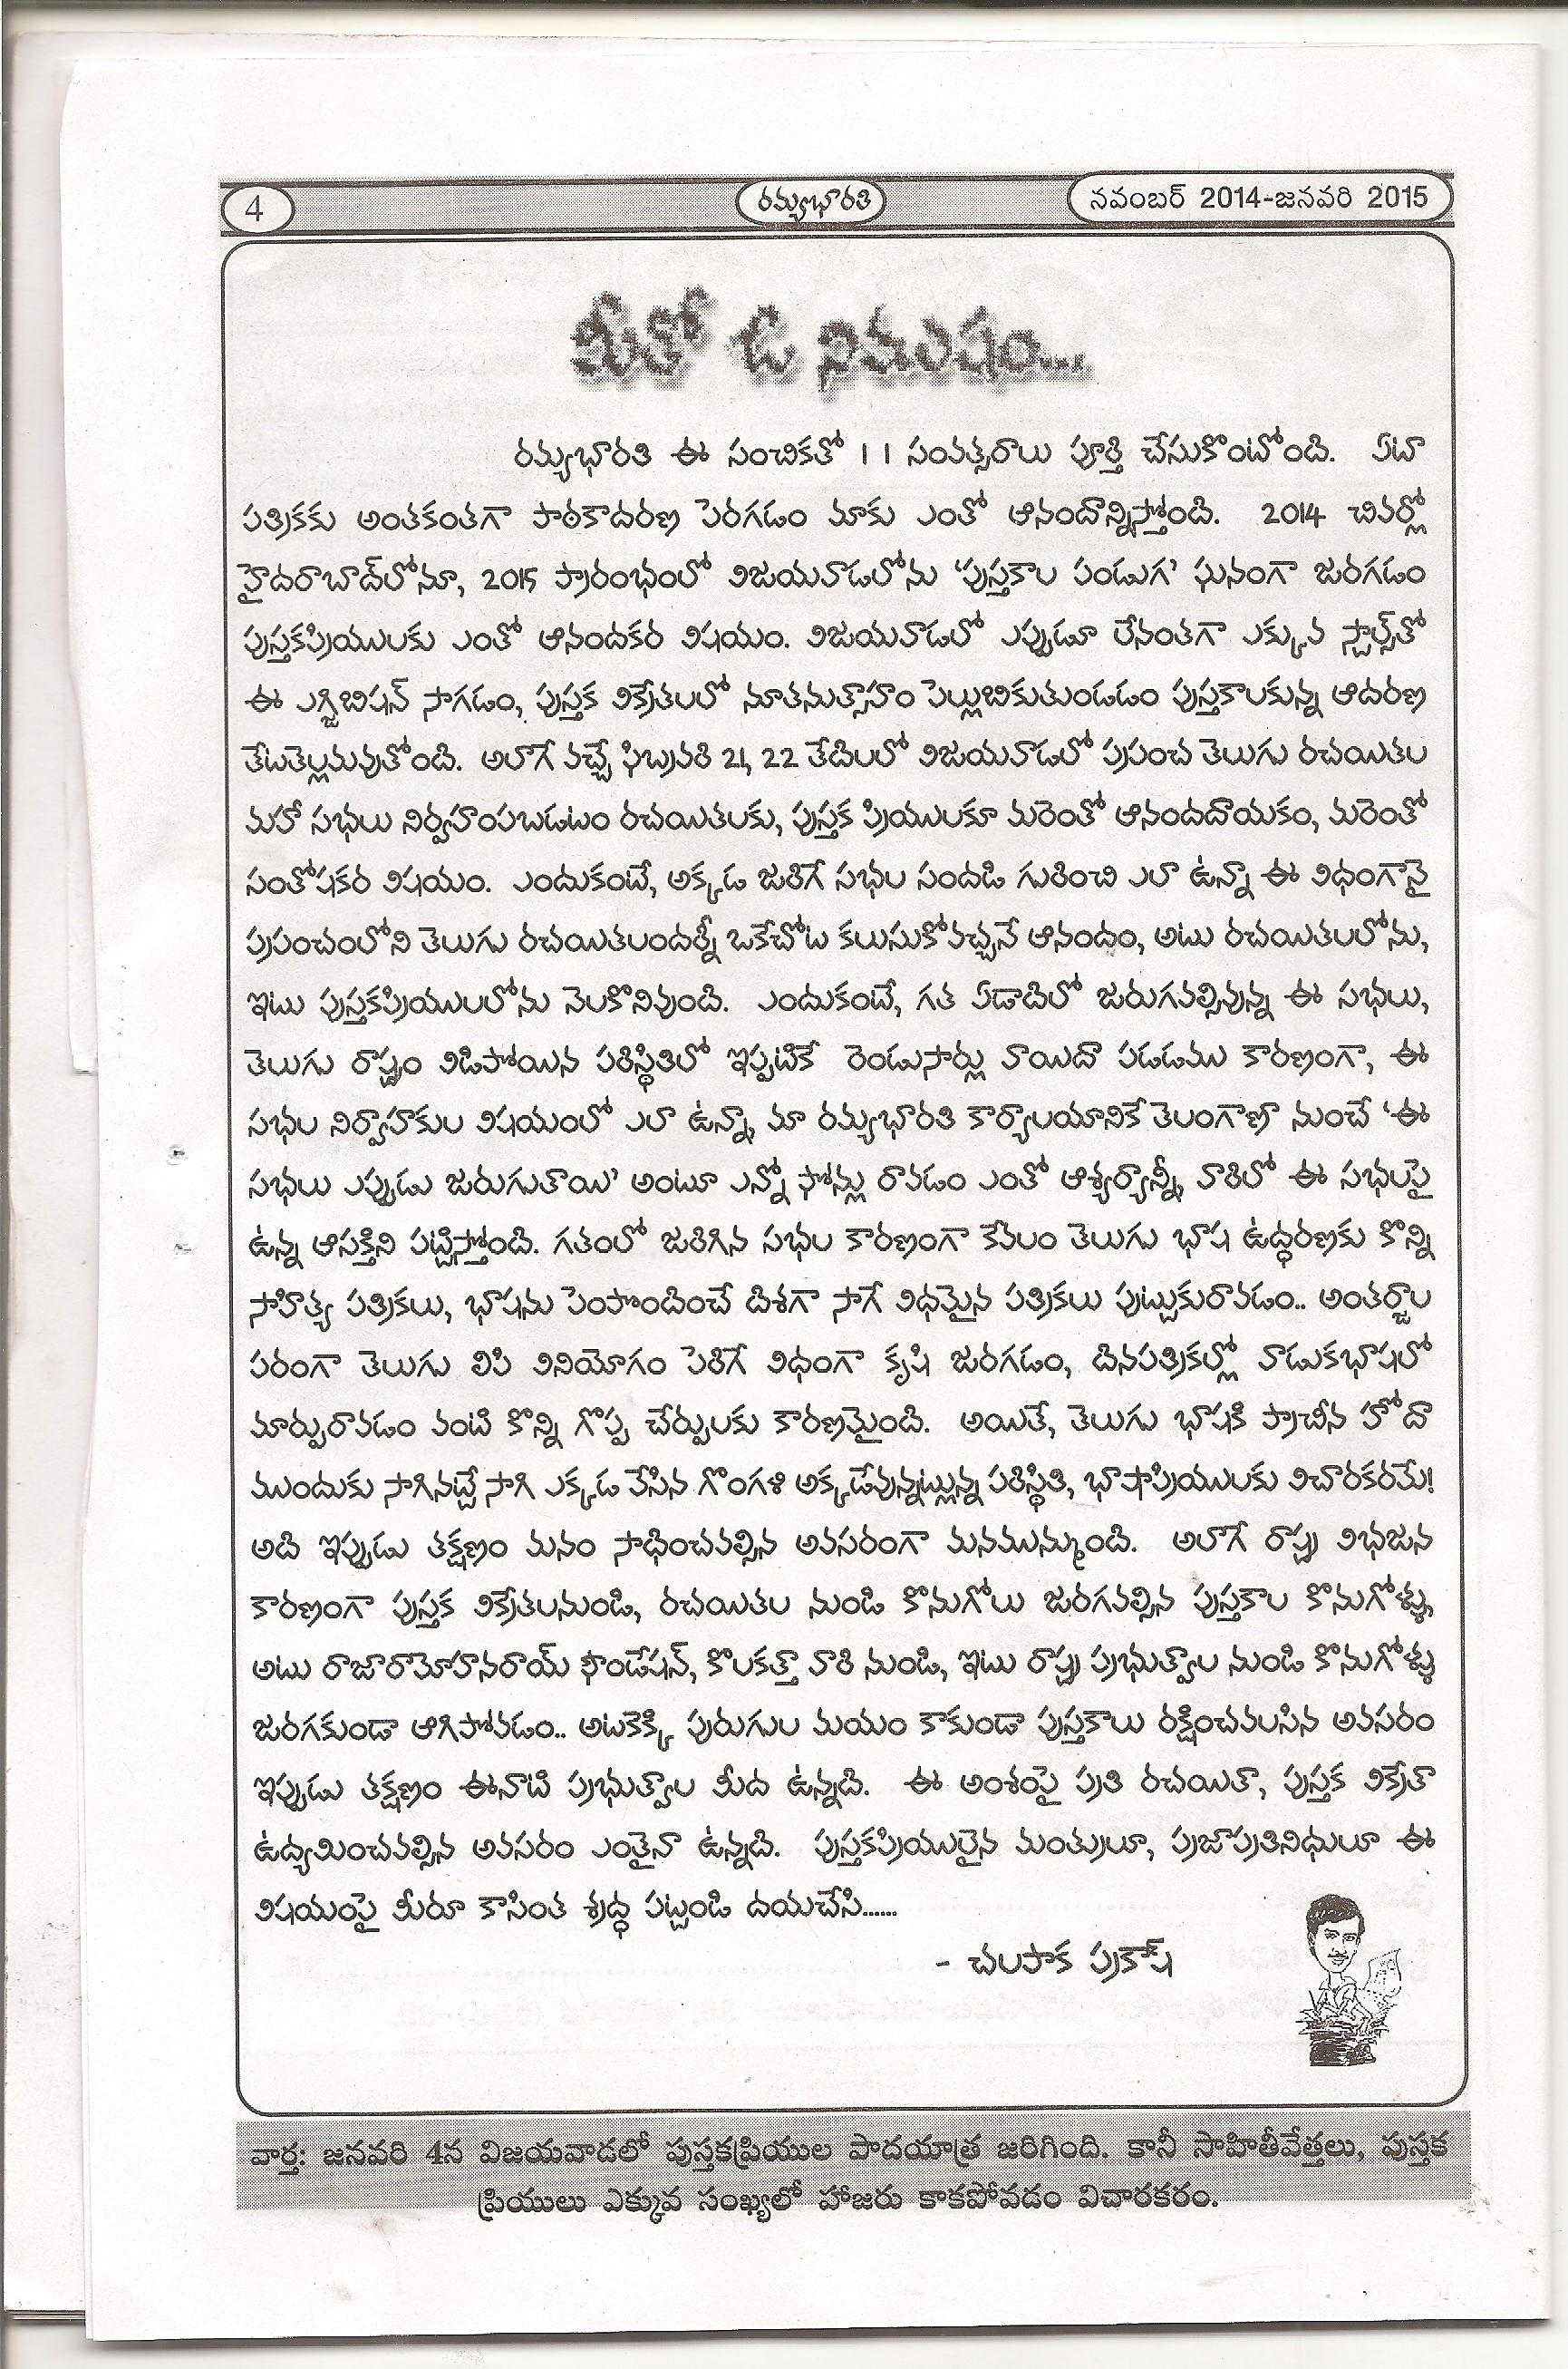 4
రమ్యభారతి
నవంబర్ 2014-జనవరి 2015
మీతో ఓ నిముషం...
రమ్యభారతి ఈ సంచికతో 11 సంవత్సరాలు పూర్తి చేసుకొంటోంది. ఏటా
పత్రికకు అంతకంతగా పాఠకాదరణ పెరగడం మాకు ఎంతో ఆనందాన్నిస్తోంది. 2014 చివర్లో
హైదరాబాద్‌లోనూ, 2015 ప్రారంభంలో విజయవాడలోను ‘పుస్తకాల పండుగ’ ఘనంగా జరగడం
పుస్తకప్రియులకు ఎంతో ఆనందకర విషయం. విజయవాడలో ఎప్పుడూ లేనంతగా ఎక్కువ స్టాల్స్‌తో
ఈ ఎగ్జిబిషన్ సాగడం, పుస్తక విక్రేతలలో నూతనుత్సాహం పెల్లుబికుతుండడం పుస్తకాలకున్న ఆదరణ
తేటతెల్లమవుతోంది. అలాగే వచ్చే ఫిబ్రవరి 21, 22 తేదీలలో విజయవాడలో ప్రపంచ తెలుగు రచయితల
మహా సభలు నిర్వహింపబడటం రచయితలకు, పుస్తక ప్రియులకూ మరెంతో ఆనందదాయకం, మరెంతో
సంతోషకర విషయం. ఎందుకంటే, అక్కడ జరిగే సభల సందడి గురించి ఎలా ఉన్నా ఈ విధంగానై
ప్రపంచంలోని తెలుగు రచయితలందర్నీ ఒకేచోట కలుసుకోవచ్చనే ఆనందం, అటు రచయితలలోను,
ఇటు పుస్తకప్రియులలోను నెలకొనివుంది. ఎందుకంటే, గత ఏడాదిలో జరుగవల్సివున్న ఈ సభలు,
తెలుగు రాష్ట్రం విడిపోయిన పరిస్థితిలో ఇప్పటికే రెండుసార్లు వాయిదా పడడము కారణంగా, ఈ
సభల నిర్వాహకుల విషయంలో ఎలా ఉన్నా, మా రమ్యభారతి కార్యాలయానికే తెలంగాణా నుంచే ‘ఈ
సభలు ఎప్పుడు జరుగుతాయి’ అంటూ ఎన్నో ఫోన్లు రావడం ఎంతో ఆశ్చర్యాన్నీ, వారిలో ఈ సభలపై
ఉన్న ఆసక్తిని పట్టిస్తోంది. గతంలో జరిగిన సభల కారణంగా కేవలం తెలుగు భాష ఉద్ధరణకు కొన్ని
సాహిత్య పత్రికలు, భాషను పెంపొందించే దిశగా సాగే విధమైన పత్రికలు పుట్టుకురావడం.. అంతర్జాల
పరంగా తెలుగు లిపి వినియోగం పెరిగే విధంగా కృషి జరగడం, దినపత్రికల్లో వాడుకభాషలో
మార్పురావడం వంటి కొన్ని గొప్ప చేర్పులకు కారణమైంది. అయితే, తెలుగు భాషకి ప్రాచీన హోదా
ముందుకు సాగినట్టే సాగి ఎక్కడ వేసిన గొంగళి అక్కడేవున్నట్లున్న పరిస్థితి, భాషాప్రియులకు విచారకరమే!
అది ఇప్పుడు తక్షణం మనం సాధించవల్సిన అవసరంగా మనమున్ముంది. అలాగే రాష్ట్ర విభజన
కారణంగా పుస్తక విక్రేతలనుండి, రచయితల నుండి కొనుగోలు జరగవల్సిన పుస్తకాల కొనుగోళ్ళు,
అటు రాజారామోహనరాయ్ ఫౌండేషన్, కొలకత్తా వారి నుండి, ఇటు రాష్ట్ర ప్రభుత్వాల నుండి కొనుగోళ్ళు
జరగకుండా ఆగిపోవడం.. అటకెక్కి పురుగుల మయం కాకుండా పుస్తకాలు రక్షించవలసిన అవసరం
ఇప్పుడు తక్షణం ఈనాటి ప్రభుత్వాల మీద ఉన్నది. ఈ అంశంపై ప్రతి రచయితా, పుస్తక విక్రేతా
ఉద్యమించవల్సిన అవసరం ఎంతైనా ఉన్నది. పుస్తకప్రియులైన మంత్రులూ, ప్రజాప్రతినిధులూ ఈ
విషయంపై మీరూ కాసింత శ్రద్ధ పట్టండి దయచేసి......
- చలపాక ప్రకాష్
వార్త: జనవరి 4న విజయవాడలో పుస్తకప్రియుల పాదయాత్ర జరిగింది. కానీ సాహితీవేత్తలు, పుస్తక
ప్రియులు ఎక్కువ సంఖ్యలో హాజరు కాకపోవడం విచారకరం.